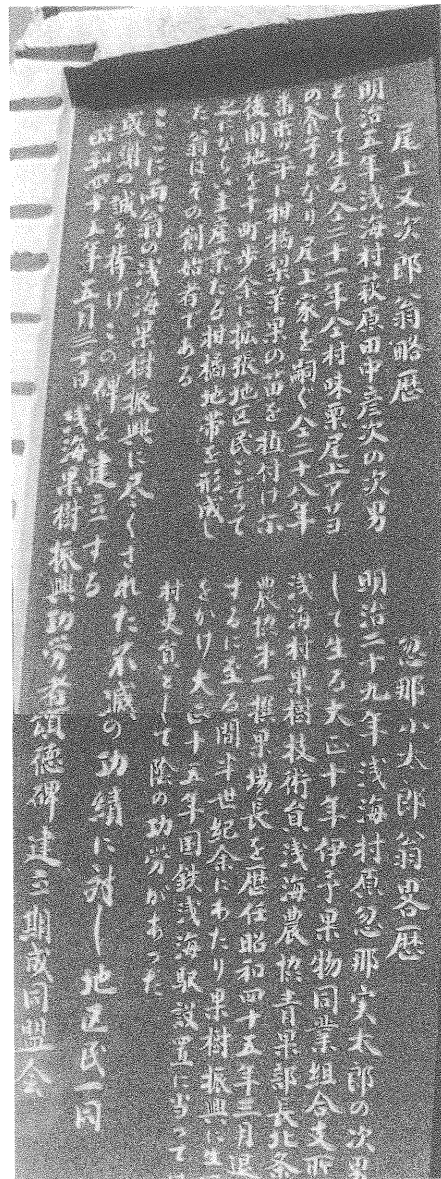 尾上又次郎翁略歴
明治五年浅海村萩原田中彦次の次男
として生る仝二十一年仝村味栗尾上アサヨ
の養子となり尾上家を嗣ぐ仝二十八年
平に柑橘梨苹果の苗を植付け尓
後園地を十町歩余に拡張地区民こぞって
之にならい主産業たる柑橘地帯を形成し
た翁はその創始者である
忽那小太郎翁畧歴
明治二十九年浅海村原忽那実太郎の次男
して生る大正十年伊予果物同業組合支所
浅海村果樹技術員浅海農協青果部長北条
農協第一撰果場長を歴任昭和四十五年三月退
するに至る間半世紀余にわたり果樹振興に生
をかけ大正十五年国鉄浅海駅設置に当って
村吏員として陰の功労があった
ここに両翁の浅海果樹振興に尽くされた不滅の功績に対し地区民一同
感謝の誠を捧げこの碑を建立する
昭和四十五年五月三十日 浅海果樹振興功労者頌徳碑建立期成同盟会